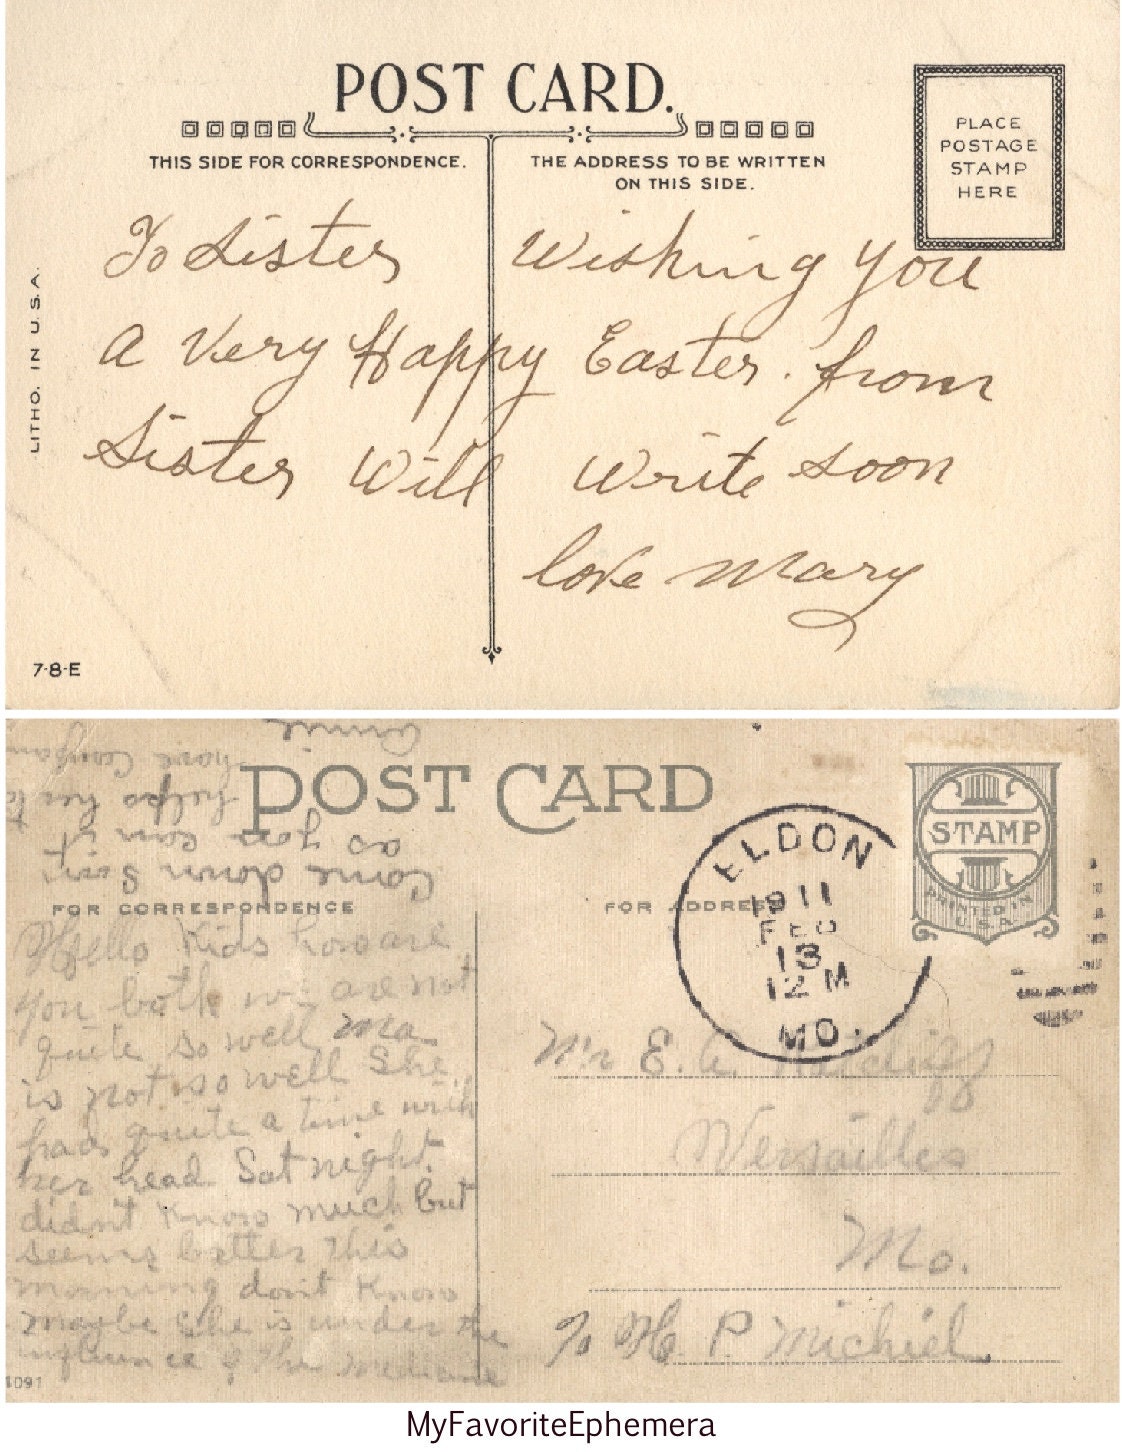 POST CARD.
THIS SIDE FOR CORRESPONDENCE.
THE ADDRESS TO BE WRITTEN
ON THIS SIDE.
PLACE
POSTAGE
STAMP
HERE
LITHO. IN U.S.A.
To Sister Wishing you
a Very Happy Easter. from
Sister Will Write soon
love Mary
7-8-E
POST CARD
FOR CORRESPONDENCE
FOR ADDRESS
STAMP
PRINTED IN
U.S.A.
ELDON
1911
FEB
13
12 M
MO.
Hello Kids how are
you both we are not
quite so well Ma
is not so well She
had quite a time with
her head Sat night.
didn't Know much but
seems better this
morning don't Know
maybe she is under the
influence of the medicine
Come down Sun
as you can it
helps her to
have Compan
Annie
Mr E. A.
Versailles
Mo.
% H. P. Michiel.
1091
MyFavoriteEphemera